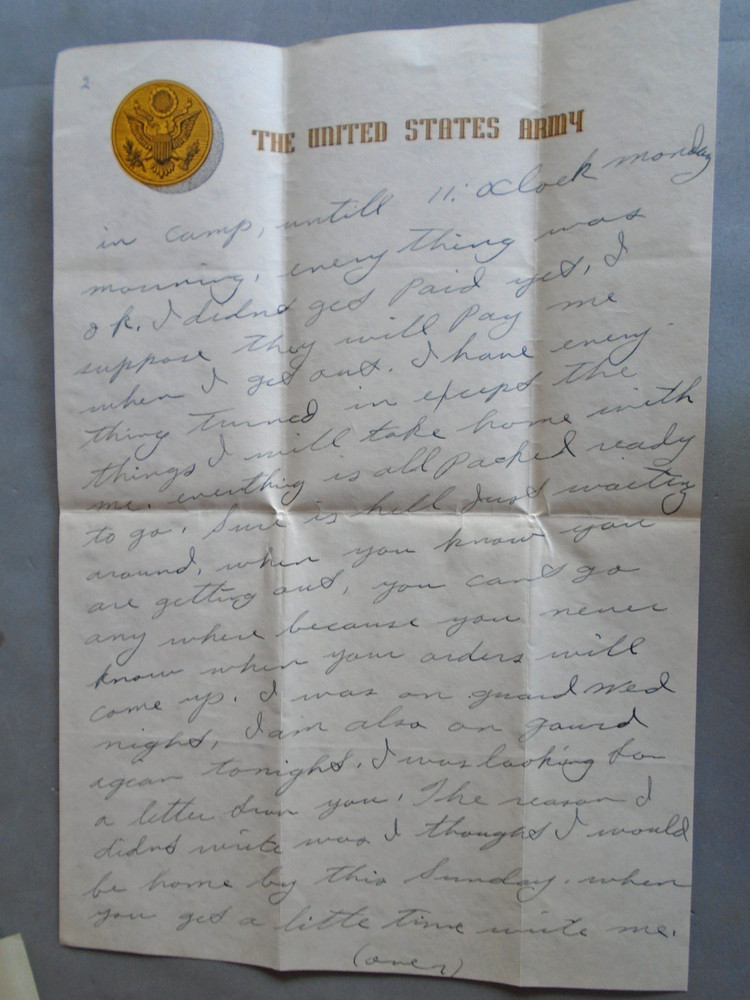 2
THE UNITED STATES ARMY
in camp, untill 11: oclock monday
mourning, every thing was
ok. I didnt get paid yet, I
suppose they will pay me
when I get out. I have every
thing turned in except the
things I will take home with
me. everthing is all packed ready
to go. Sure is hell Just waiting
around, when you know you
are getting out, you cant go
any where because you never
know when your orders will
come up. I was on guard Wed
night, I am also on gaurd
agean tonight. I was looking for
a letter from you. The reason I
didnt write was I thought I would
be home by this Sunday. when
you get a little time write me.
(over)